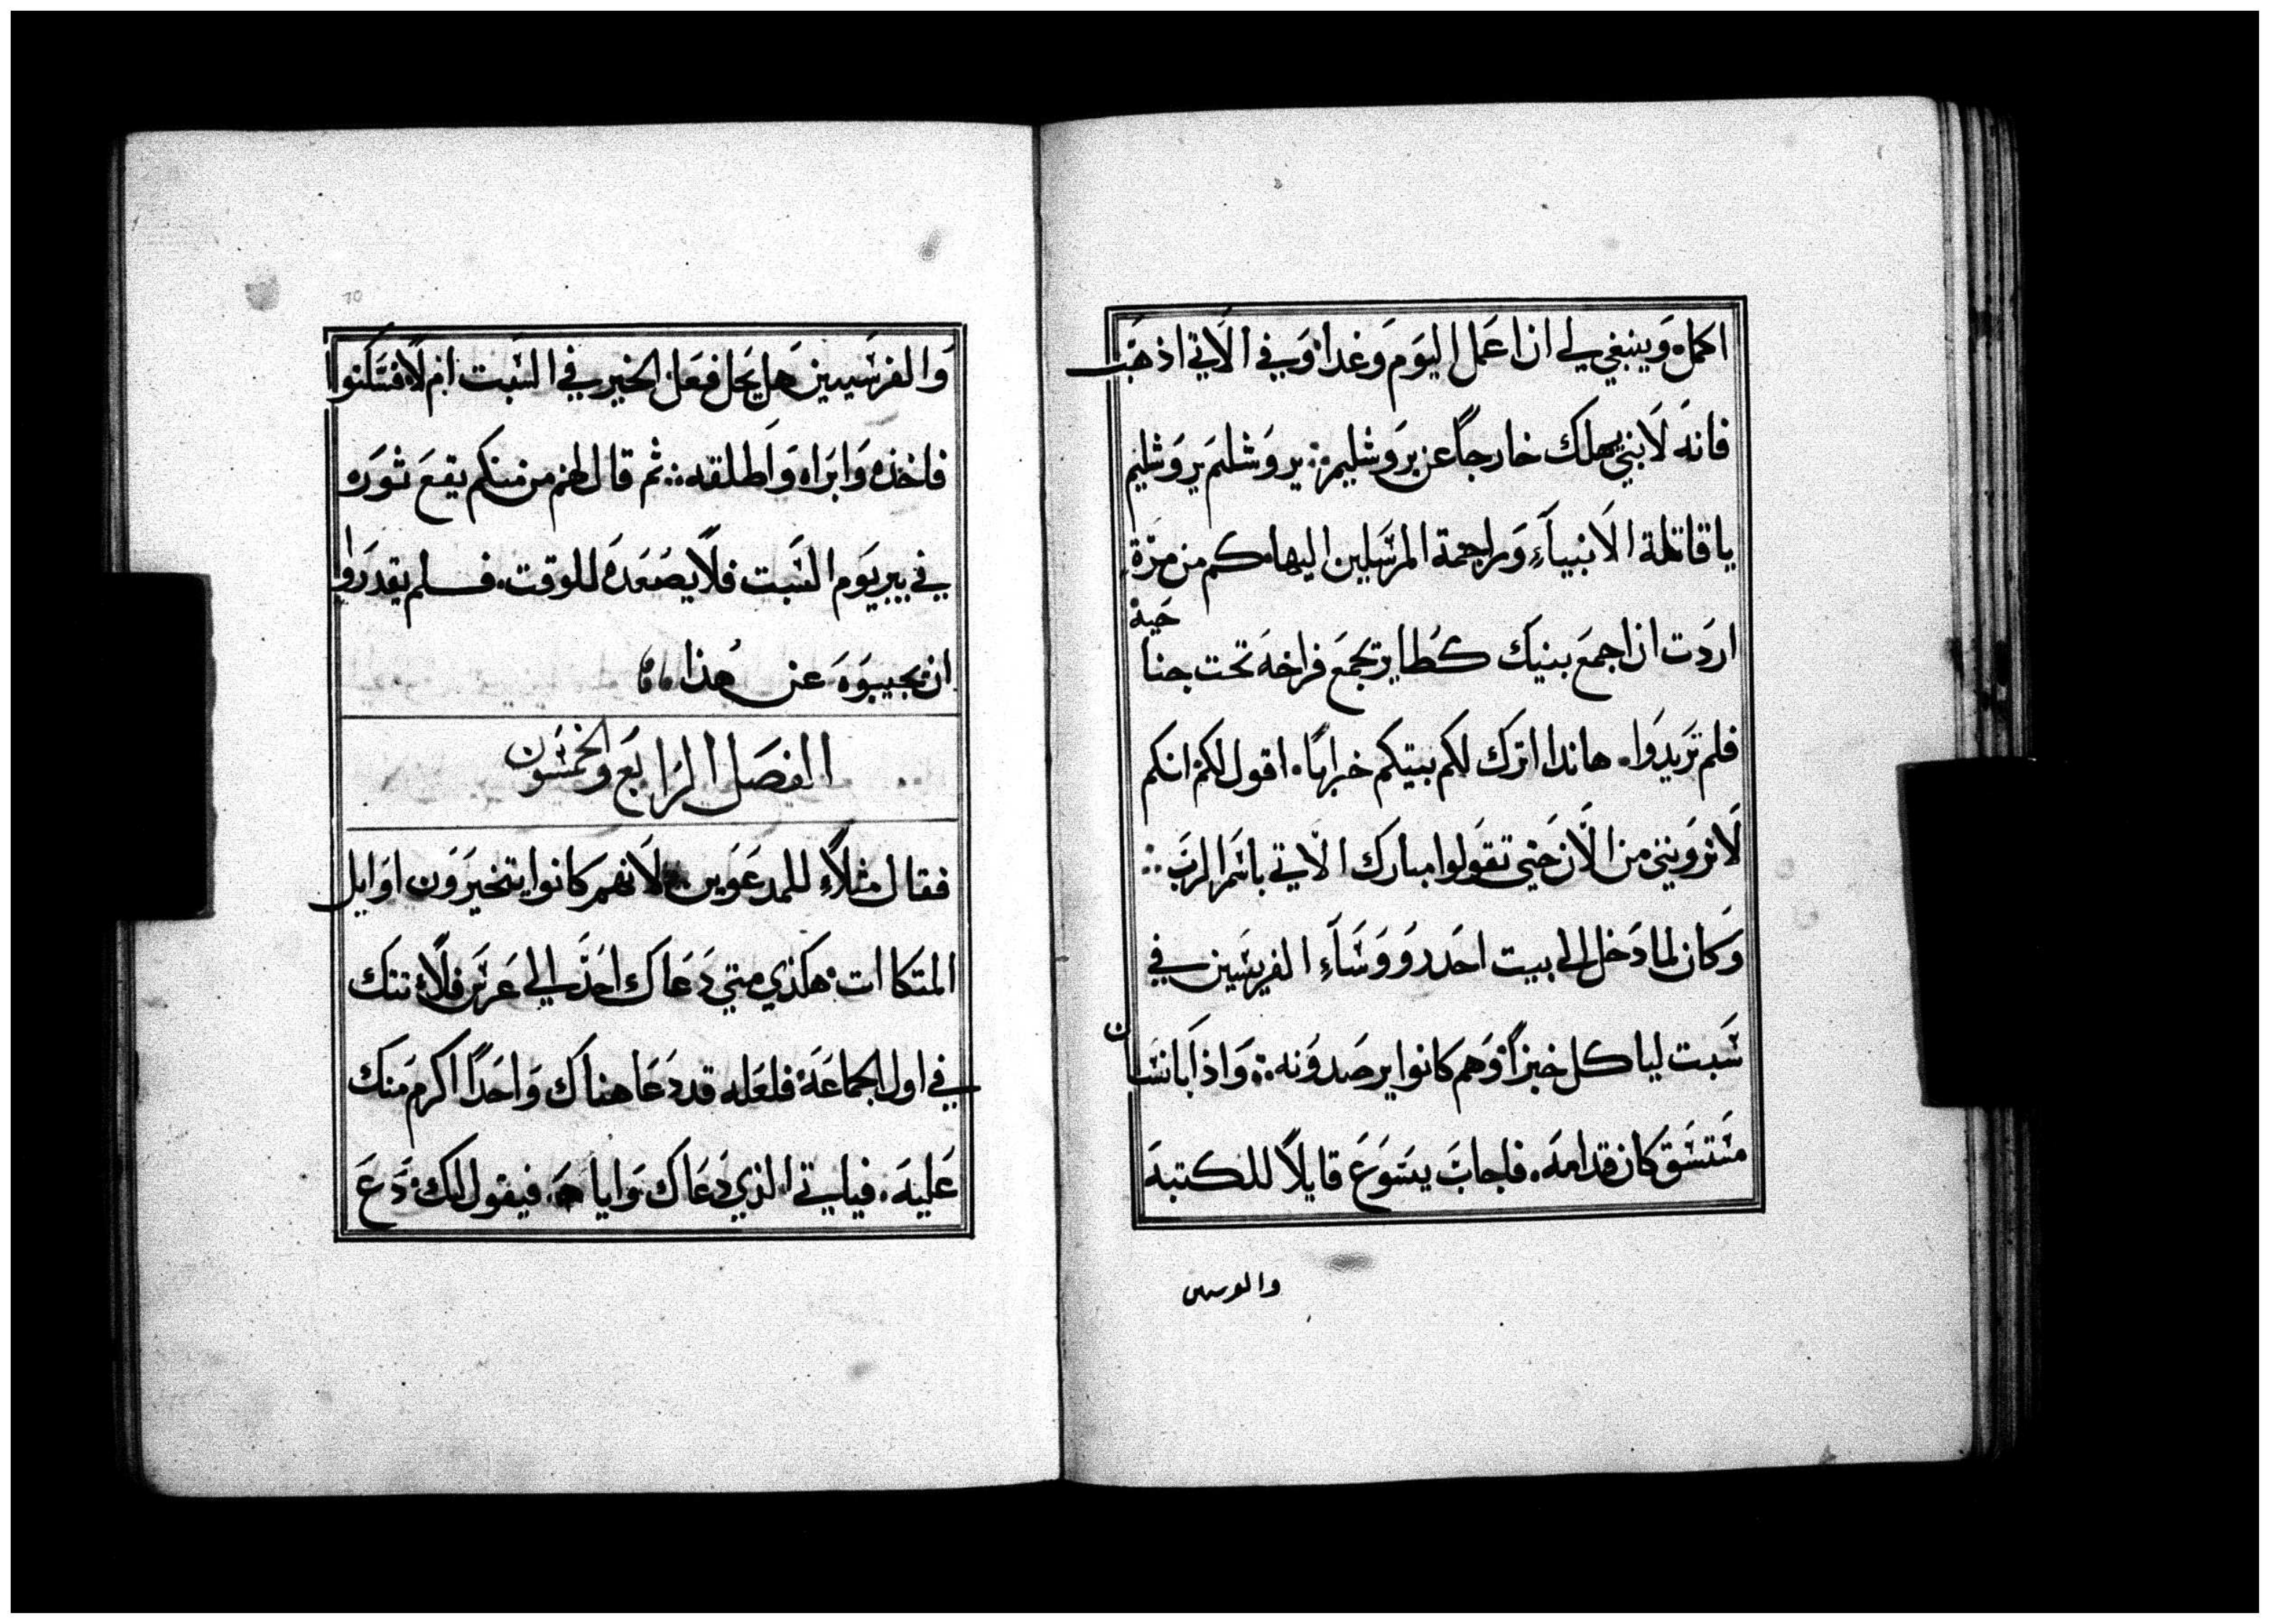 اكمل، وَينبغي لي ان اعَمل اليوَم وَغدا، وَفي الاَتي اذهَب
فانهَ لاَ بني يهلك خارجاً عن يروَشليم: يروَشلمَ يروَشليم
يا قاتلة الاَنبيآءِ وَراجمة المرسَلين اليها، كم من مرّة
اردَت ان اجمعَ بنيك كطاير تجمعَ فراخهَ تحت جنا
حَيهْ
فلم تريدَوا، هاندا اترك لكم بيتكم خرابًا، اقول لكم انكم
لاَ ترَوني من الاَن حَتي تقوَلوا مبارك الاتي باسَم الربَ:
وَكان لما دَخل الي بيت احَد روَوسَآءِ الفريسَين في
سَبت لياكل خبزاً، وَهم كانوا يرصَدوَنه: وَاذا بانسَان
مَستسَق كان قدامهَ، فاجابَ يسَوَع قايلاً للكتبهَ
والفرسين
70
وَالفرسَيين هَل يحَل فعَل الخير في السَبت ام لاَ، فسَكتوا
فاخذه وَابرَاه وَاَطلقه: ثم قال لهم من منكم يقعَ ثورَه
في بير يوَم السَبت فلاَ يصَعدَه للوقت، فلم يقدرَوا
ان يجيبوَهَ عَن هذا
الفصَل الرابعَ والخمسَون
فقال مثلاً للمدعَوَين لاَنهم كانوا يتخيروَن اوَايل
المتكاات: هكذي متي دَعَاك احَدَ الي عَرسَ فلاَ تتك
في اول الجماعَة، فلعَله قد دَعَا هناك وَاحَداً اكرم مَنك
عَليهَ، فياتي الذي دَعَاك وَاياهَ، فيقول لك: دَعَ